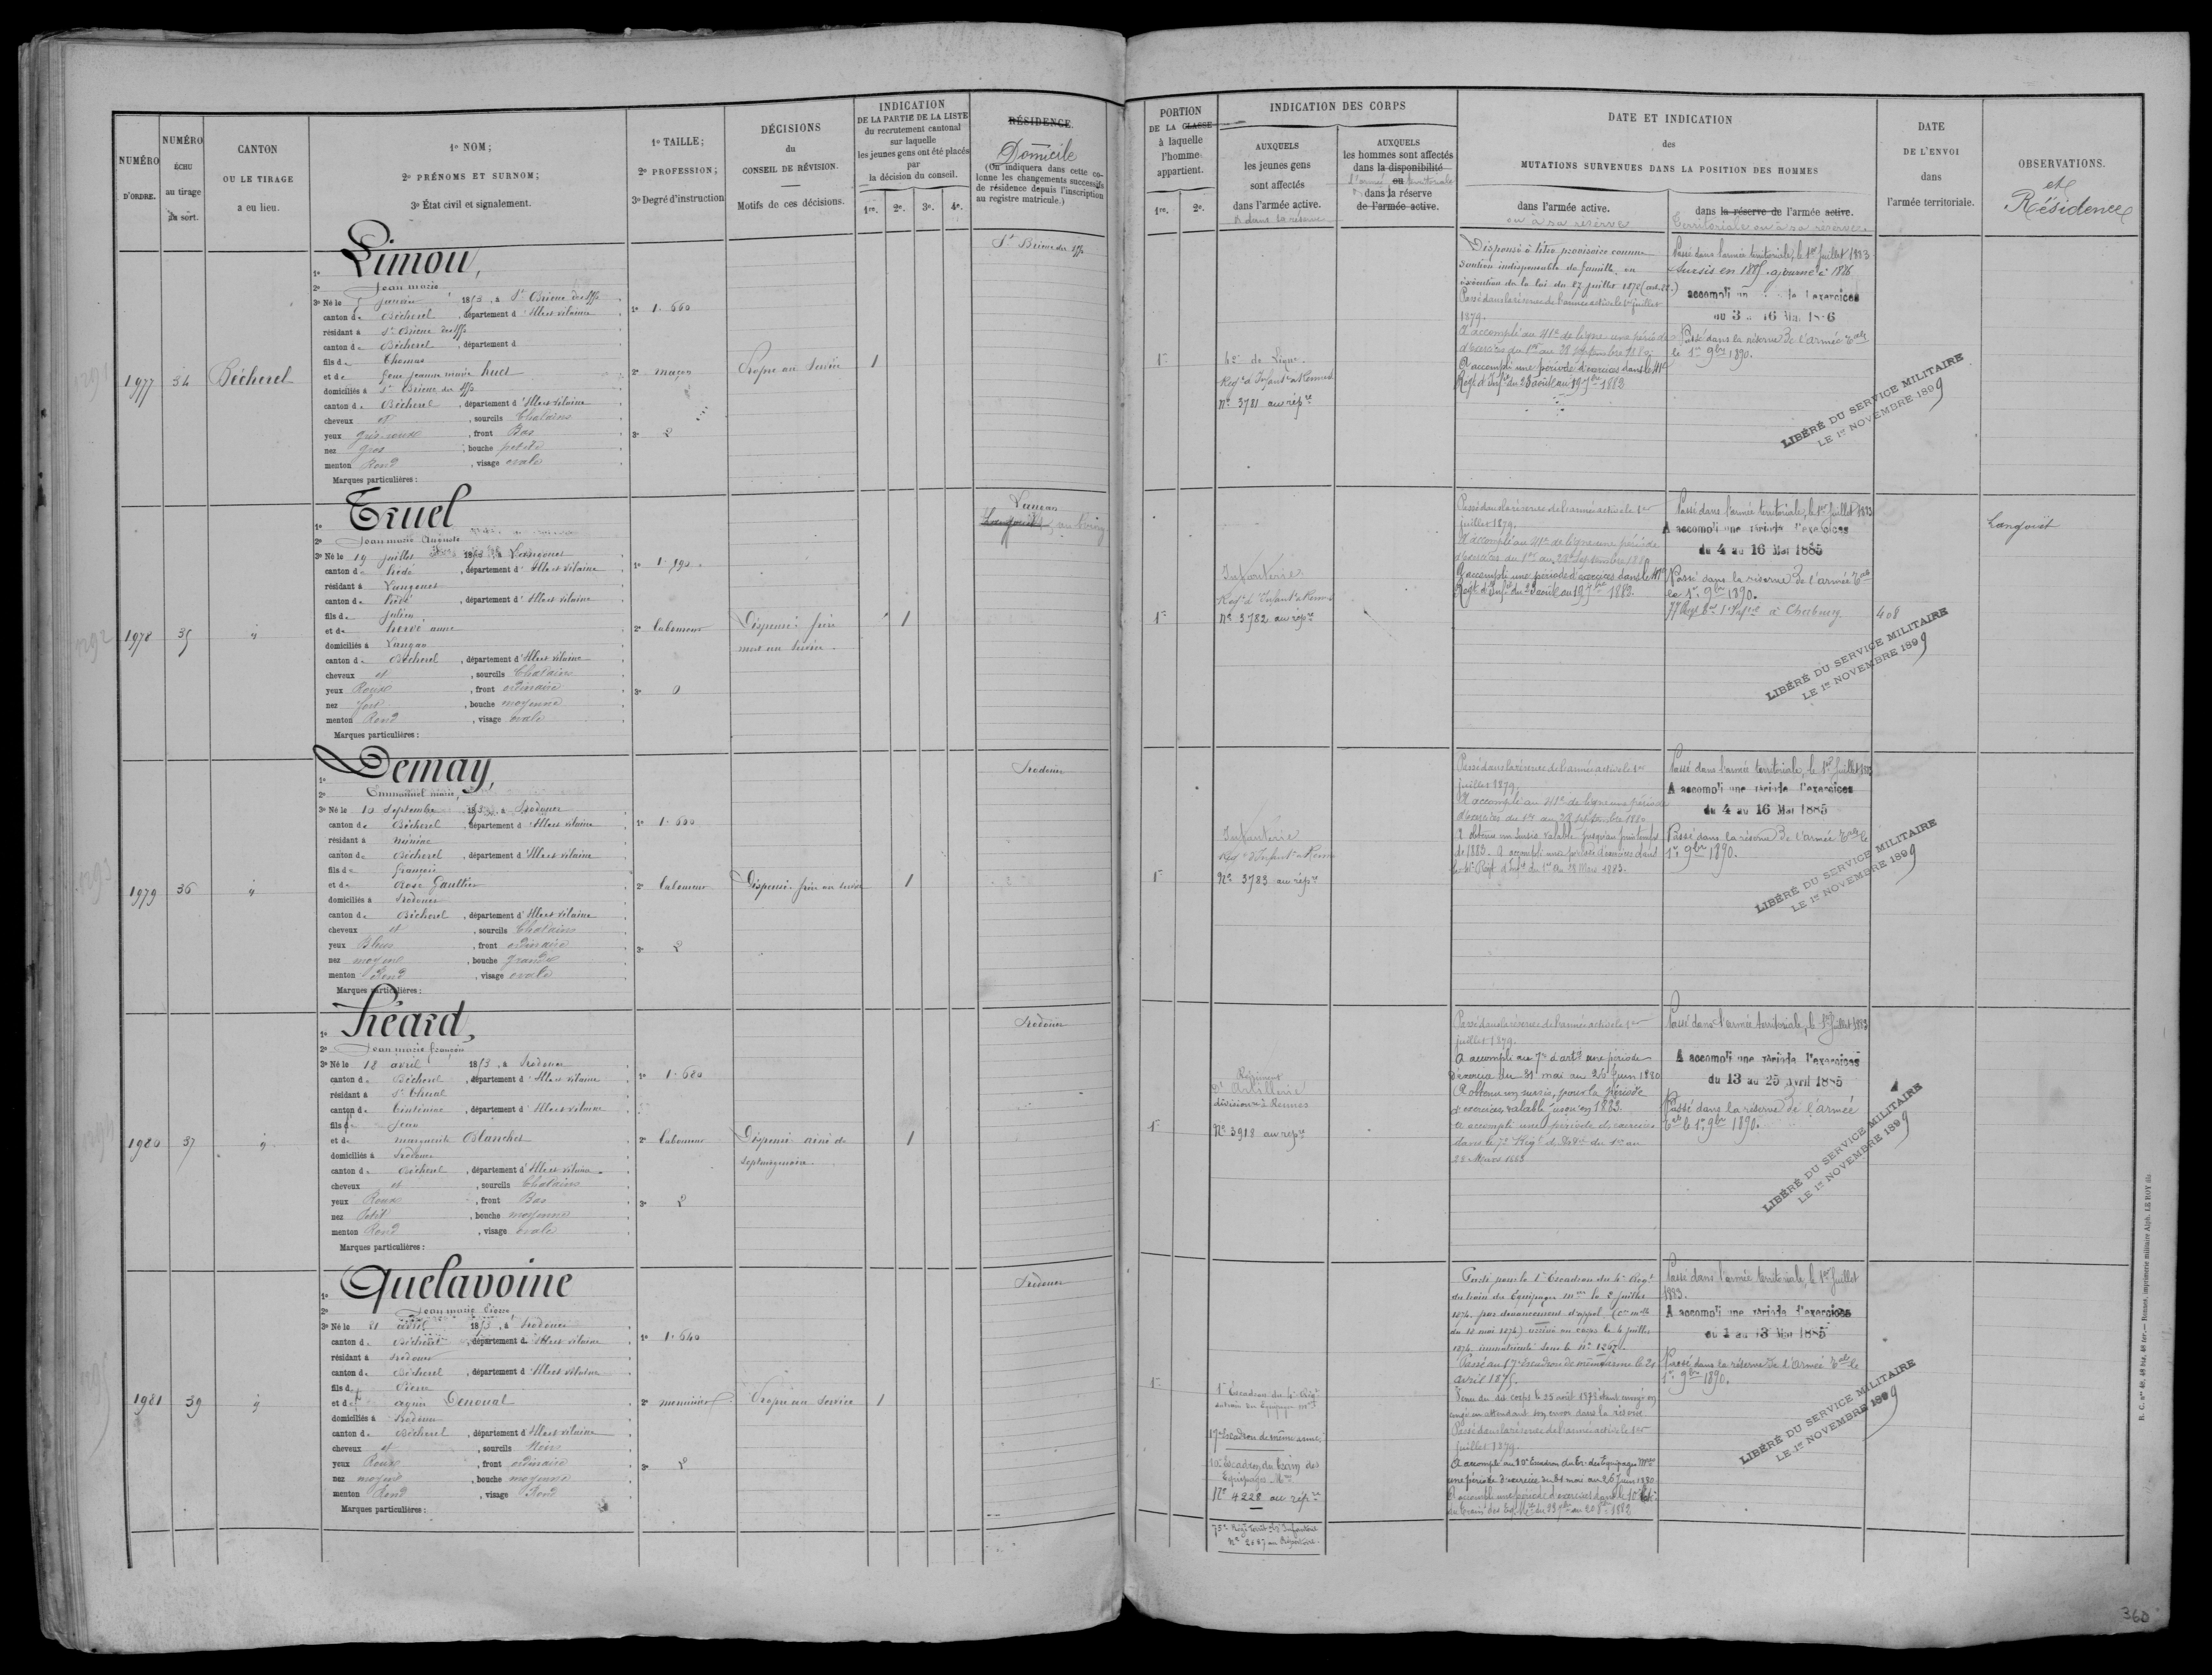 NUMÉRO
D'ORDRE.
NUMÉRO
ÉCHU
au tirage
au sort.
CANTON
OU LE TIRAGE
a eu lieu.
1º NOM;
2º PRÉNOMS ET SURNOM;
3º État civil et signalement.
1º TAILLE;
2º PROFESSION;
3º Degré d'instruction
DÉCISIONS
du
CONSEIL DE RÉVISION.
Motifs de ces décisions.
INDICATION
DE LA PARTIE DE LA LISTE
du recrutement cantonal
sur laquelle
les jeunes gens ont été placés
par
la décision du conseil.
1re. 2e. 3e. 4e.
RÉSIDENCE.
Domicile
(On indiquera dans cette co-
lonne les changements successifs
de résidence depuis l'inscription
au registre matricule.)
PORTION
DE LA CLASSE
à laquelle
l'homme
appartient.
1re. 2e.
INDICATION DES CORPS
AUXQUELS
les jeunes gens
sont affectés
dans l'armée active.
& dans la réserve
AUXQUELS
les hommes sont affectés
dans la disponibilité
ou
l'armée territoriale
dans la réserve
de l'armée active.
DATE ET INDICATION
des
MUTATIONS SURVENUES DANS LA POSITION DES HOMMES
dans l'armée active.
ou à sa réserve
dans la réserve de l'armée active.
Territoriale ou à sa réserve
DATE
DE L'ENVOI
dans
l'armée territoriale.
OBSERVATIONS.
et
Résidence
1977 34 Bécherel
1º Limou,
2º Jean marie
3º Né le 5 janvier 1853, à St Brieuc des Iffs
canton de Bécherel, département d'Ille et Vilaine
résidant à St Brieuc des Iffs
canton de Bécherel, département d
fils de Thomas
et de feue jeanne marie huet
domiciliés à St Brieuc des Iffs
canton de Bécherel, département d'Ille et Vilaine
cheveux et, sourcils Chatains
yeux gris roux, front Bas
nez gros, bouche petite
menton Rond, visage ovale
Marques particulières:
1º 1.660
2º maçon
3º 2
Propre au Service
1
St Brieuc des Iffs
1re
41e de Ligne.
Regt d'Infant. à Rennes
Nº 3781 au répre
Dispensé à titre provisoire comme
soutien indispensable de famille, en
exécution de la loi du 27 juillet 1872 (art. 22.)
Passé dans la réserve de l'armée active le 1er juillet
1879.
A accompli au 41e de ligne une période
d'exercices du 1er au 28 septembre 1880.
A accompli une période d'exercices dans le 41e
Régt d'Infie du 23 août au 19 7bre 1882
Passé dans l'armée territoriale, le 1er Juillet 1883
Sursis en 1885, ajourné à 1886
accompli un
du 3 au 16 Mai 1886
Passé dans la réserve de l'armée Tale
le 1er 9bre 1890.
LIBÉRÉ DU SERVICE MILITAIRE
LE 1er NOVEMBRE 1899
1978 35 "
1º Truel
2º Jean marie Auguste
3º Né le 19 juillet 1853, à Langouet
canton de hédé, département d'Ille et Vilaine
résidant à Langouet
canton de hédé, département d'Ille et Vilaine
fils de julien
et de hervé anne
domiciliés à Langan
canton de Bécherel, département d'Ille et Vilaine
cheveux et, sourcils Chatains
yeux Roux, front ordinaire
nez fort, bouche moyenne
menton Rond, visage ovale
Marques particulières:
2º laboureur
3º 0
Dispensé frère
mort au Service
1
Langan
1re
Infanterie
Regt d'Infant. à Rennes
Nº 3782 au répre
Passé dans la réserve de l'armée active le 1er
juillet 1879.
A accompli au 41e de ligne une période
d'exercices du 1er au 28 septembre 1880
A accompli une période d'exercices dans le 41e
Régt d'Infie du 23 août au 19 7bre 1882
Passé dans l'armée territoriale, le 1er Juillet 1883
A accompli une période d'exercices
du 4 au 16 Mai 1885
Passé dans la réserve de l'armée Tale
le 1er 9bre 1890.
à Cherbourg
408
Langouët
LIBÉRÉ DU SERVICE MILITAIRE
LE 1er NOVEMBRE 1899
1979 36 "
1º Demay,
2º Emmanuel marie,
3º Né le 10 septembre 1853, à Irodouer
canton de Bécherel, département d'Ille et Vilaine
résidant à miniac
canton de Bécherel, département d'Ille et Vilaine
fils de françois
et de Rose Gaultier
domiciliés à Irodouer
canton de Bécherel, département d'Ille et Vilaine
cheveux et, sourcils Chatains
yeux Bleus, front ordinaire
nez moyen, bouche grande
menton Rond, visage ovale
Marques particulières:
1º 1.600
2º laboureur
3º 2
Dispensé frère au service
1
Irodouer
1re
Infanterie
Regt d'Infant. à Rennes
Nº 3783 au répre
Passé dans la réserve de l'armée active le 1er
juillet 1879.
A accompli au 41e de ligne une période
d'exercices du 1er au 28 septembre 1880
A obtenu un sursis valable jusqu'au printemps
de 1883. A accompli une période d'exercices dans
le 41e Régt d'Infie du 1er au 28 Mars 1883.
Passé dans l'armée territoriale, le 1er Juillet 1883
A accompli une période d'exercices
du 4 au 16 Mai 1885
Passé dans la réserve de l'armée Tale le
1er 9bre 1890.
LIBÉRÉ DU SERVICE MILITAIRE
LE 1er NOVEMBRE 1899
1980 37 "
1º Piéard,
2º Jean marie françois
3º Né le 18 avril 1853, à Irodouer
canton de Bécherel, département d'Ille et Vilaine
résidant à St Thual
canton de Tinténiac, département d'Ille et Vilaine
fils de Jean
et de marguerite Blanchet
domiciliés à Irodouer
canton de Bécherel, département d'Ille et Vilaine
cheveux et, sourcils Chatains
yeux Roux, front Bas
nez Petit, bouche moyenne
menton Rond, visage ovale
Marques particulières:
1º 1.680
2º laboureur
3º 2
Dispensé aîné de
septuagénaire.
1
Irodouer
1re
Régiment
d'Artillerie
divisionre à Rennes
Nº 3918 au répre
Passé dans la réserve de l'armée active le 1er
juillet 1879.
A accompli au 7e d'artie une période
d'exercices du 31 mai au 26 Juin 1880
A obtenu un sursis, pour la période
d'exercices valable jusqu'en 1883.
A accompli une période d'exercices
dans le 7e Régt d'Artie du 1er au
28 Mars 1883
Passé dans l'armée territoriale, le 1er Juillet 1883
A accompli une période d'exercices
du 13 au 25 avril 1885
Passé dans la réserve de l'armée
Tale le 1er 9bre 1890.
LIBÉRÉ DU SERVICE MILITAIRE
LE 1er NOVEMBRE 1899
1981 39 "
1º Quelavoine
2º Jean marie Pierre
3º Né le 21 avril 1853, à Irodouer
canton de Bécherel, département d'Ille et Vilaine
résidant à Irodouer
canton de Bécherel, département d'Ille et Vilaine
fils de Pierre
et de agnès Denoual
domiciliés à Irodouer
canton de Bécherel, département d'Ille et Vilaine
cheveux et, sourcils Noirs
yeux Roux, front ordinaire
nez moyen, bouche moyenne
menton Rond, visage Rond
Marques particulières:
1º 1.640
2º menuisier
3º 2
Propre au Service
1
Irodouer
1re
1er Escadron du 4e Régt
du train des Equipages mres
17e Escadron de même arme,
10e Escadron du train des
Equipages Mres
Nº 4228 au répre
75e Régt Territ. d'Infanterie
Nº 2057 au Répertoire.
Parti pour le 1er Escadron du 4e Régt
du train des Equipages mres le 2 juillet
1874, par devancement d'appel
du 12 mai 1874) arrivé au corps le 4 juillet
1874, immatriculé sous le Nº 1267.
Passé au 17e Escadron de même arme le 21
avril 1875.
congé en attendant son envoi dans la réserve
Passé dans la réserve de l'armée active le 1er
juillet 1879.
A accompli au 10e Escadron du tr. des Equipages Mres
une période d'exercices du 31 mai au 26 Juin 1880.
A accompli une période d'exercices dans le 10e Esc.
Passé dans l'armée territoriale, le 1er Juillet
1883.
A accompli une période d'exercices
du 1 au 13 Mai 1885
Passé dans la réserve de l'armée Tale le
1er 9bre 1890.
LIBÉRÉ DU SERVICE MILITAIRE
LE 1er NOVEMBRE 1899
Rennes, imprimerie militaire Alph. LE ROY fils
360